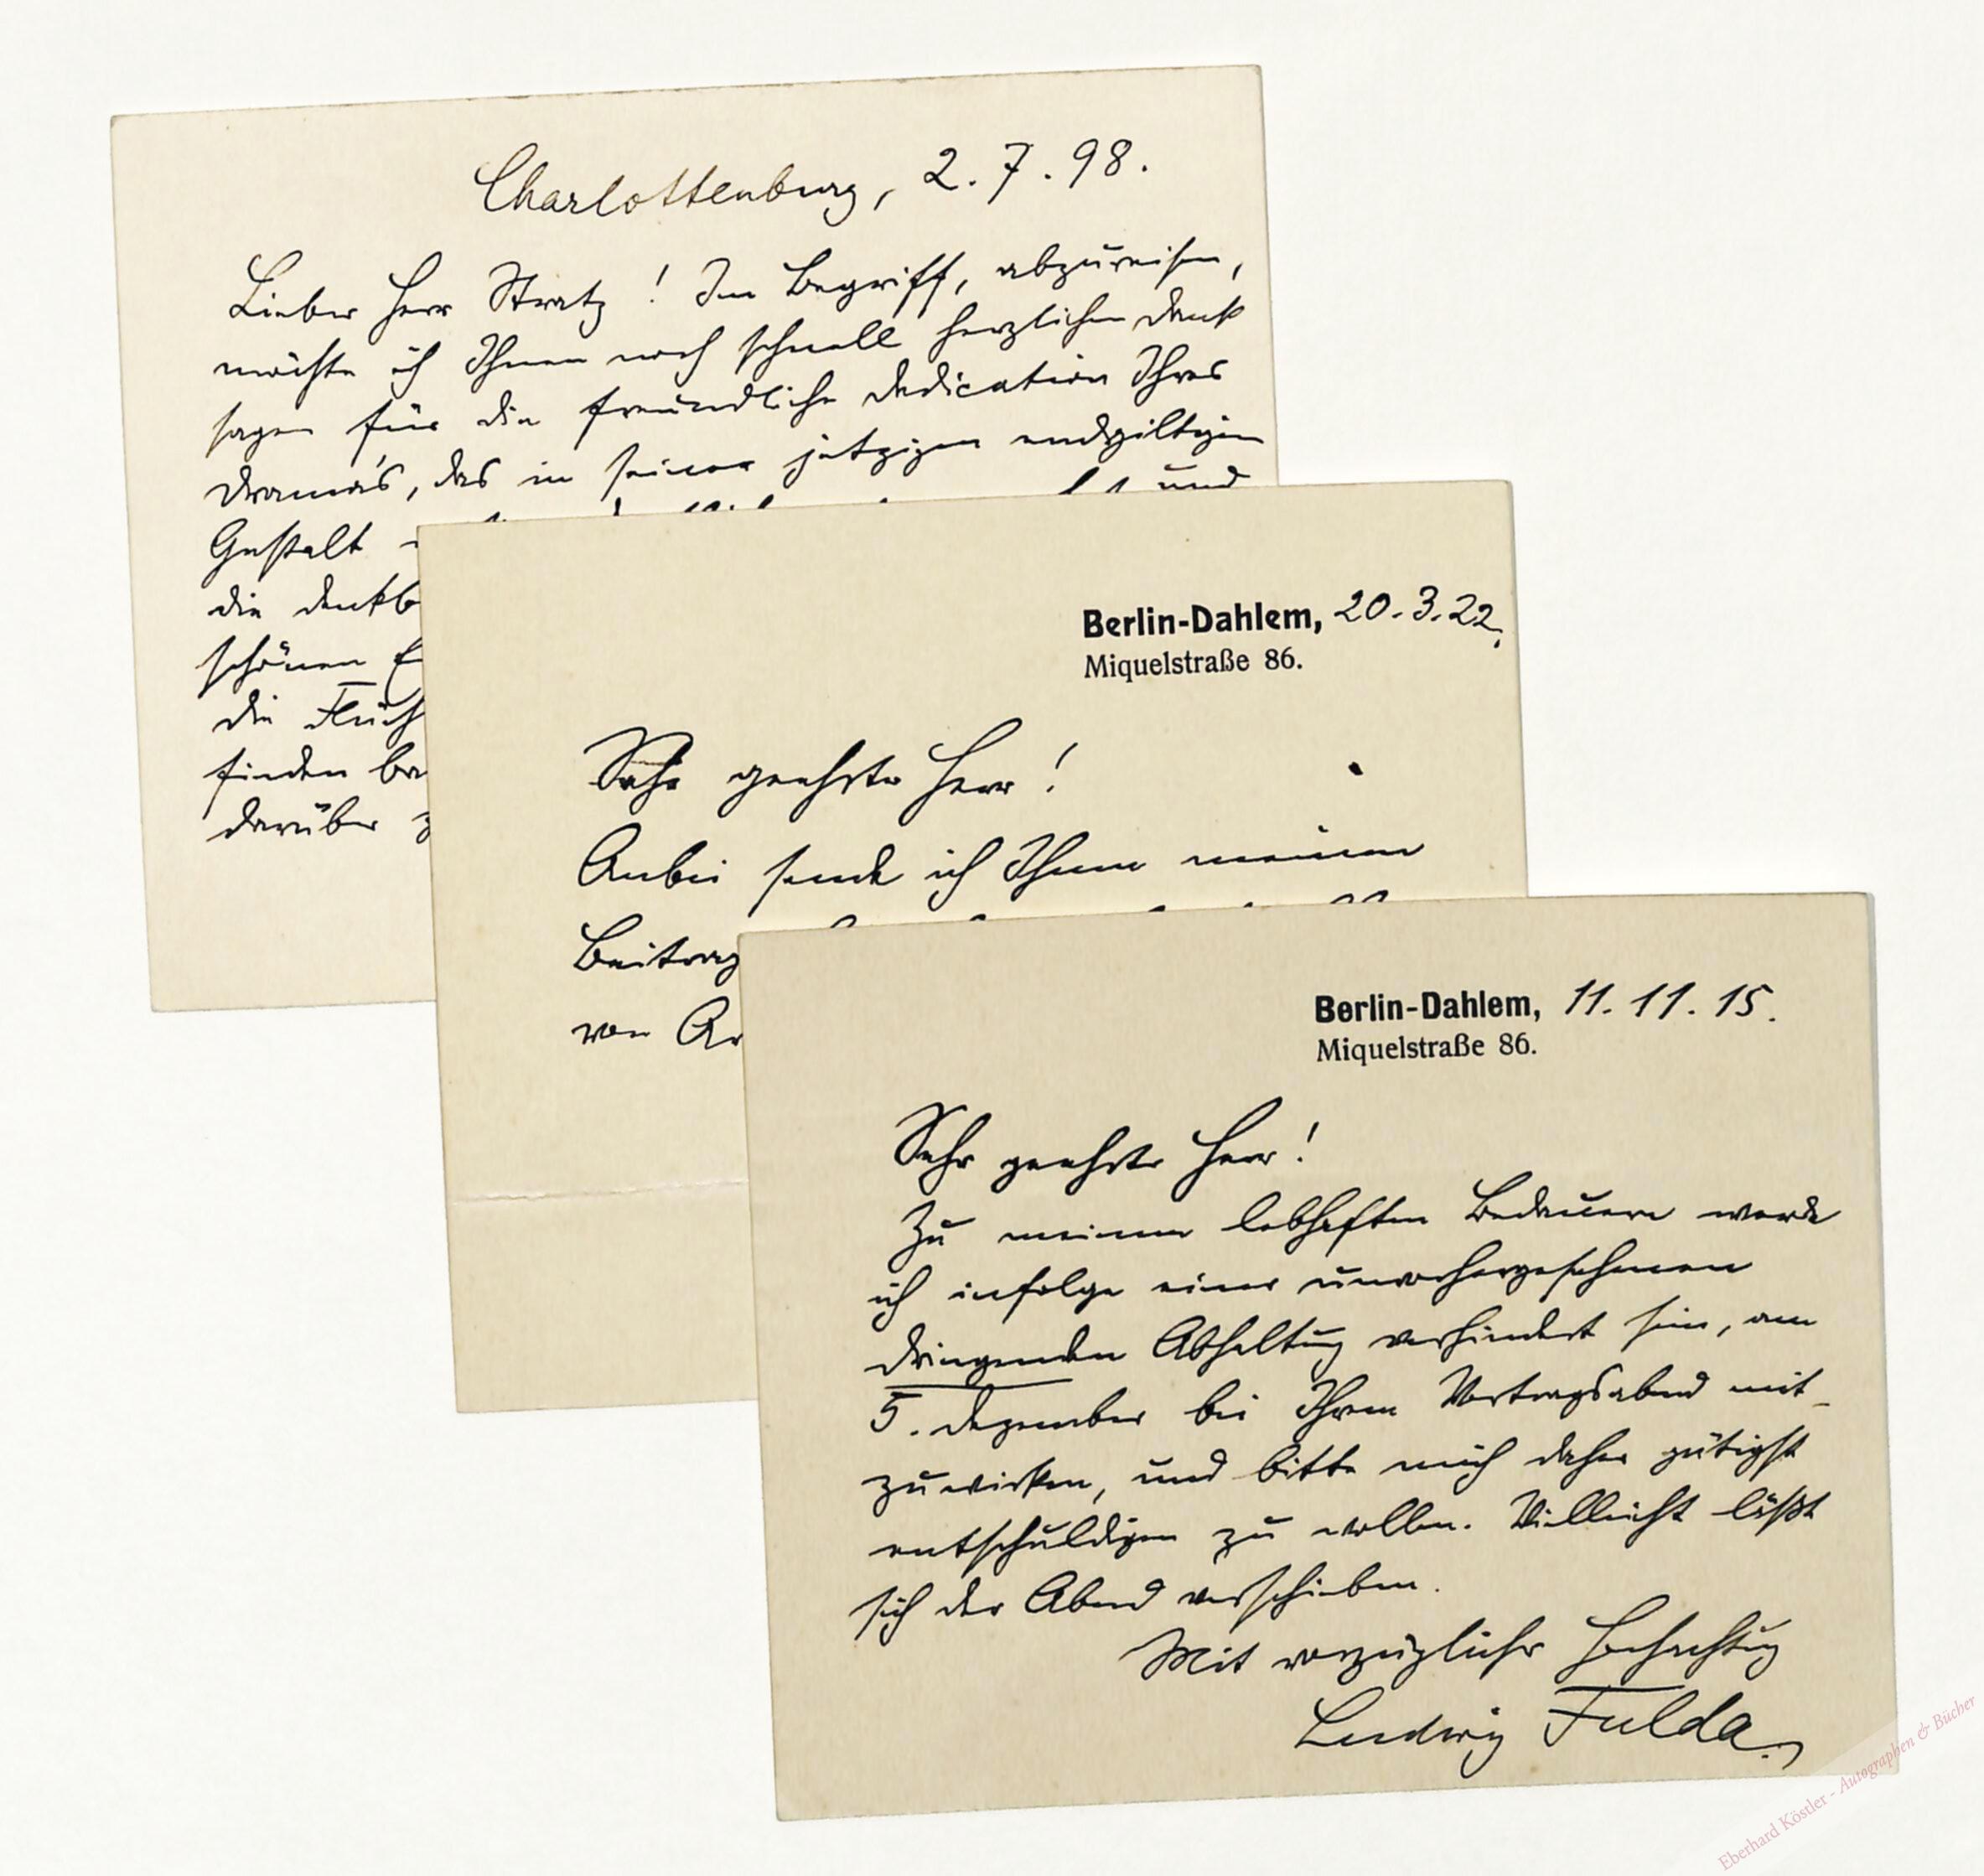 Charlottenburg, 2.7.98.
Lieber Herr Stratz! Im Begriff, abzureisen,
möchte ich Ihnen noch schnell herzlichen Dank
sagen für die freundliche Dedication Ihres
Dramas, das in seiner jetzigen endgiltigen
Gestalt
und
die denkb
schönen E
die Flüch
finden be
darüber z
Berlin-Dahlem, 20.3.22.
Miquelstraße 86.
Sehr geehrter Herr!
Anbei sende ich Ihnen meinen
Beitrag
von Ar
Berlin-Dahlem, 11.11.15.
Miquelstraße 86.
Sehr geehrter Herr!
Zu meinem lebhaften Bedauern werde
ich infolge einer unvorhergesehenen
dringenden Abhaltung verhindert sein, am
5. Dezember bei Ihrem Vortragsabend mit-
zuwirken, und bitte mich daher gütigst
entschuldigen zu wollen. Vielleicht läßt
sich der Abend verschieben.
Mit vorzüglicher Hochachtung
Ludwig Fulda.
Eberhard Köstler - Autographen & Bücher